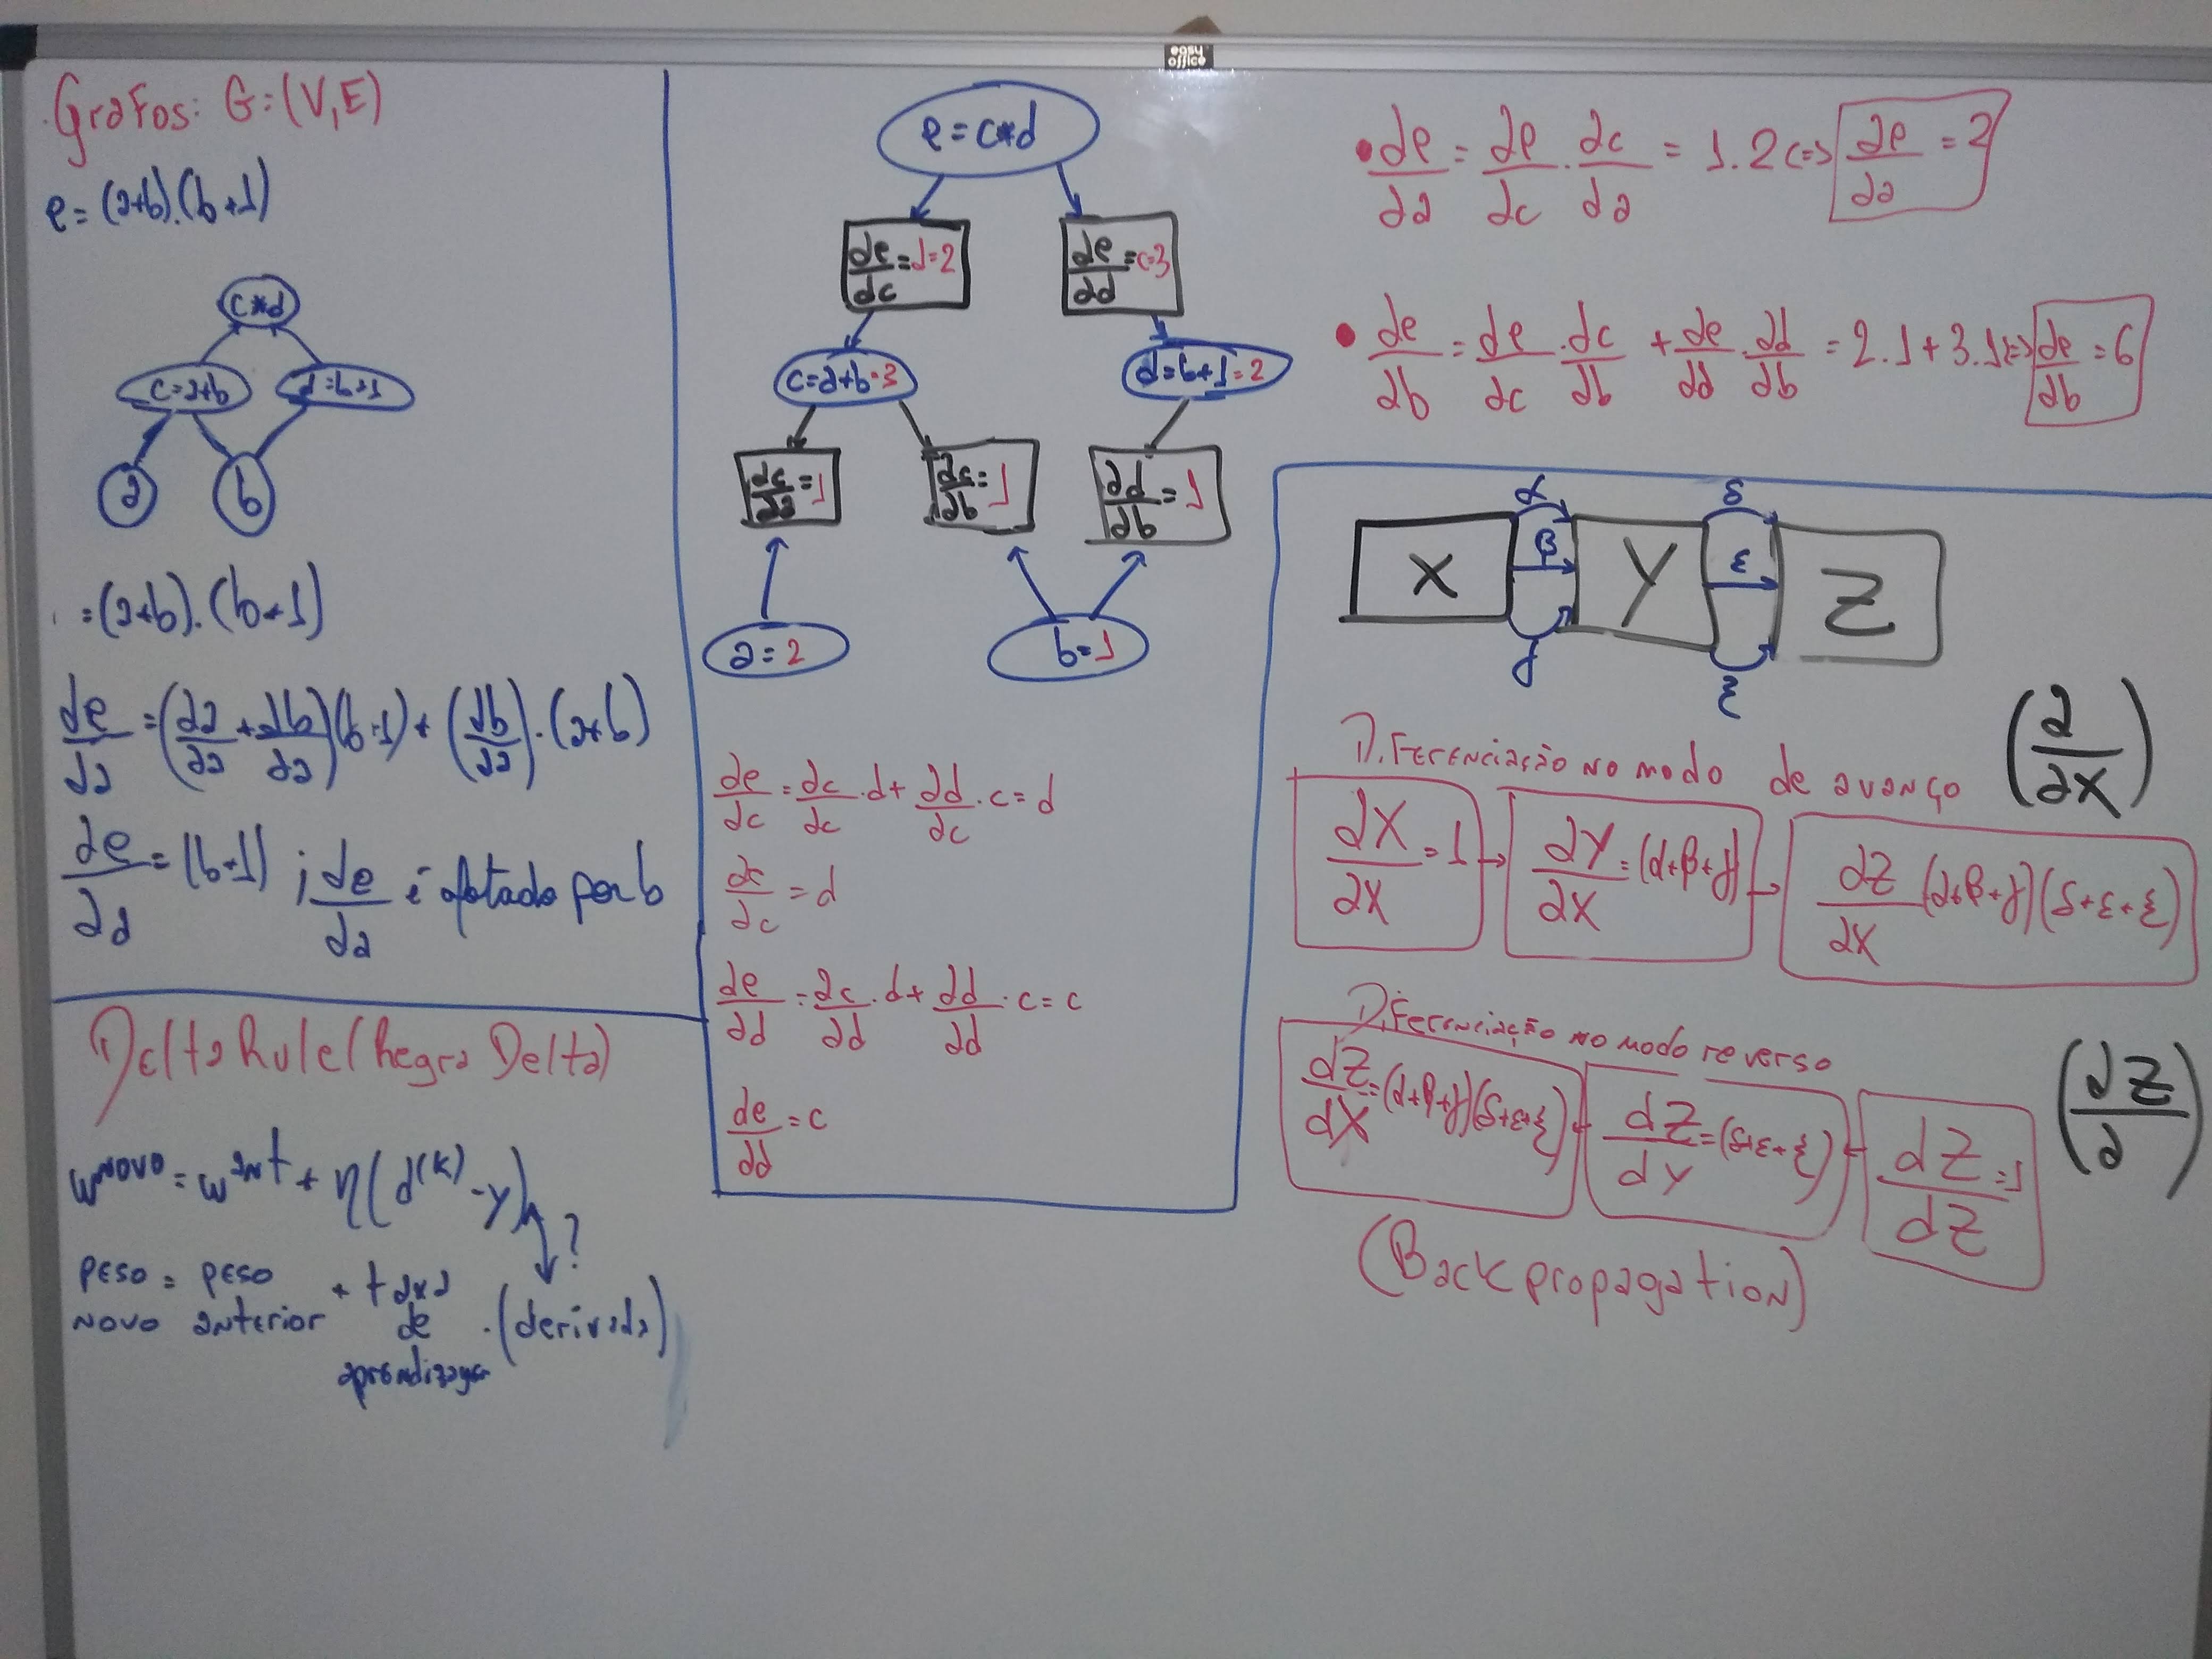 easy
office
Grafos: G=(V,E)
e=(a+b).(b+1)
c*d
c=a+b
d=b+1
a
b
=(a+b).(b+1)
∂e/∂a=(∂a/∂a+∂b/∂a)(b+1)+(∂b/∂a).(a+b)
∂e/∂a=(b+1) ; ∂e/∂a é afetado por b
Delta Rule (Regra Delta)
w^novo = w^ant + η(d^(k) - y)
?
peso novo = peso anterior + taxa de aprendizagem .(derivada)
e=c*d
∂e/∂c=d=2
∂e/∂d=c=3
c=a+b=3
d=b+1=2
∂c/∂a=1
∂c/∂b=1
∂d/∂b=1
a=2
b=1
∂e/∂c=∂c/∂c.d+∂d/∂c.c=d
∂e/∂c=d
∂e/∂d=∂c/∂d.d+∂d/∂d.c=c
∂e/∂d=c
•∂e/∂a=∂e/∂c.∂c/∂a=1.2<=>∂e/∂a=2
•∂e/∂b=∂e/∂c.∂c/∂b+∂e/∂d.∂d/∂b=2.1+3.1<=>∂e/∂b=6
α
δ
X
β
Y
ε
Z
γ
ξ
Diferenciação no modo de avanço (∂/∂X)
∂X/∂X=1
∂Y/∂X=(α+β+γ)
∂Z/∂X(α+β+γ)(δ+ε+ξ)
Diferenciação no modo reverso (∂Z/∂)
∂Z/∂X=(α+β+γ)(δ+ε+ξ)
∂Z/∂Y=(δ+ε+ξ)
∂Z/∂Z=1
(Backpropagation)